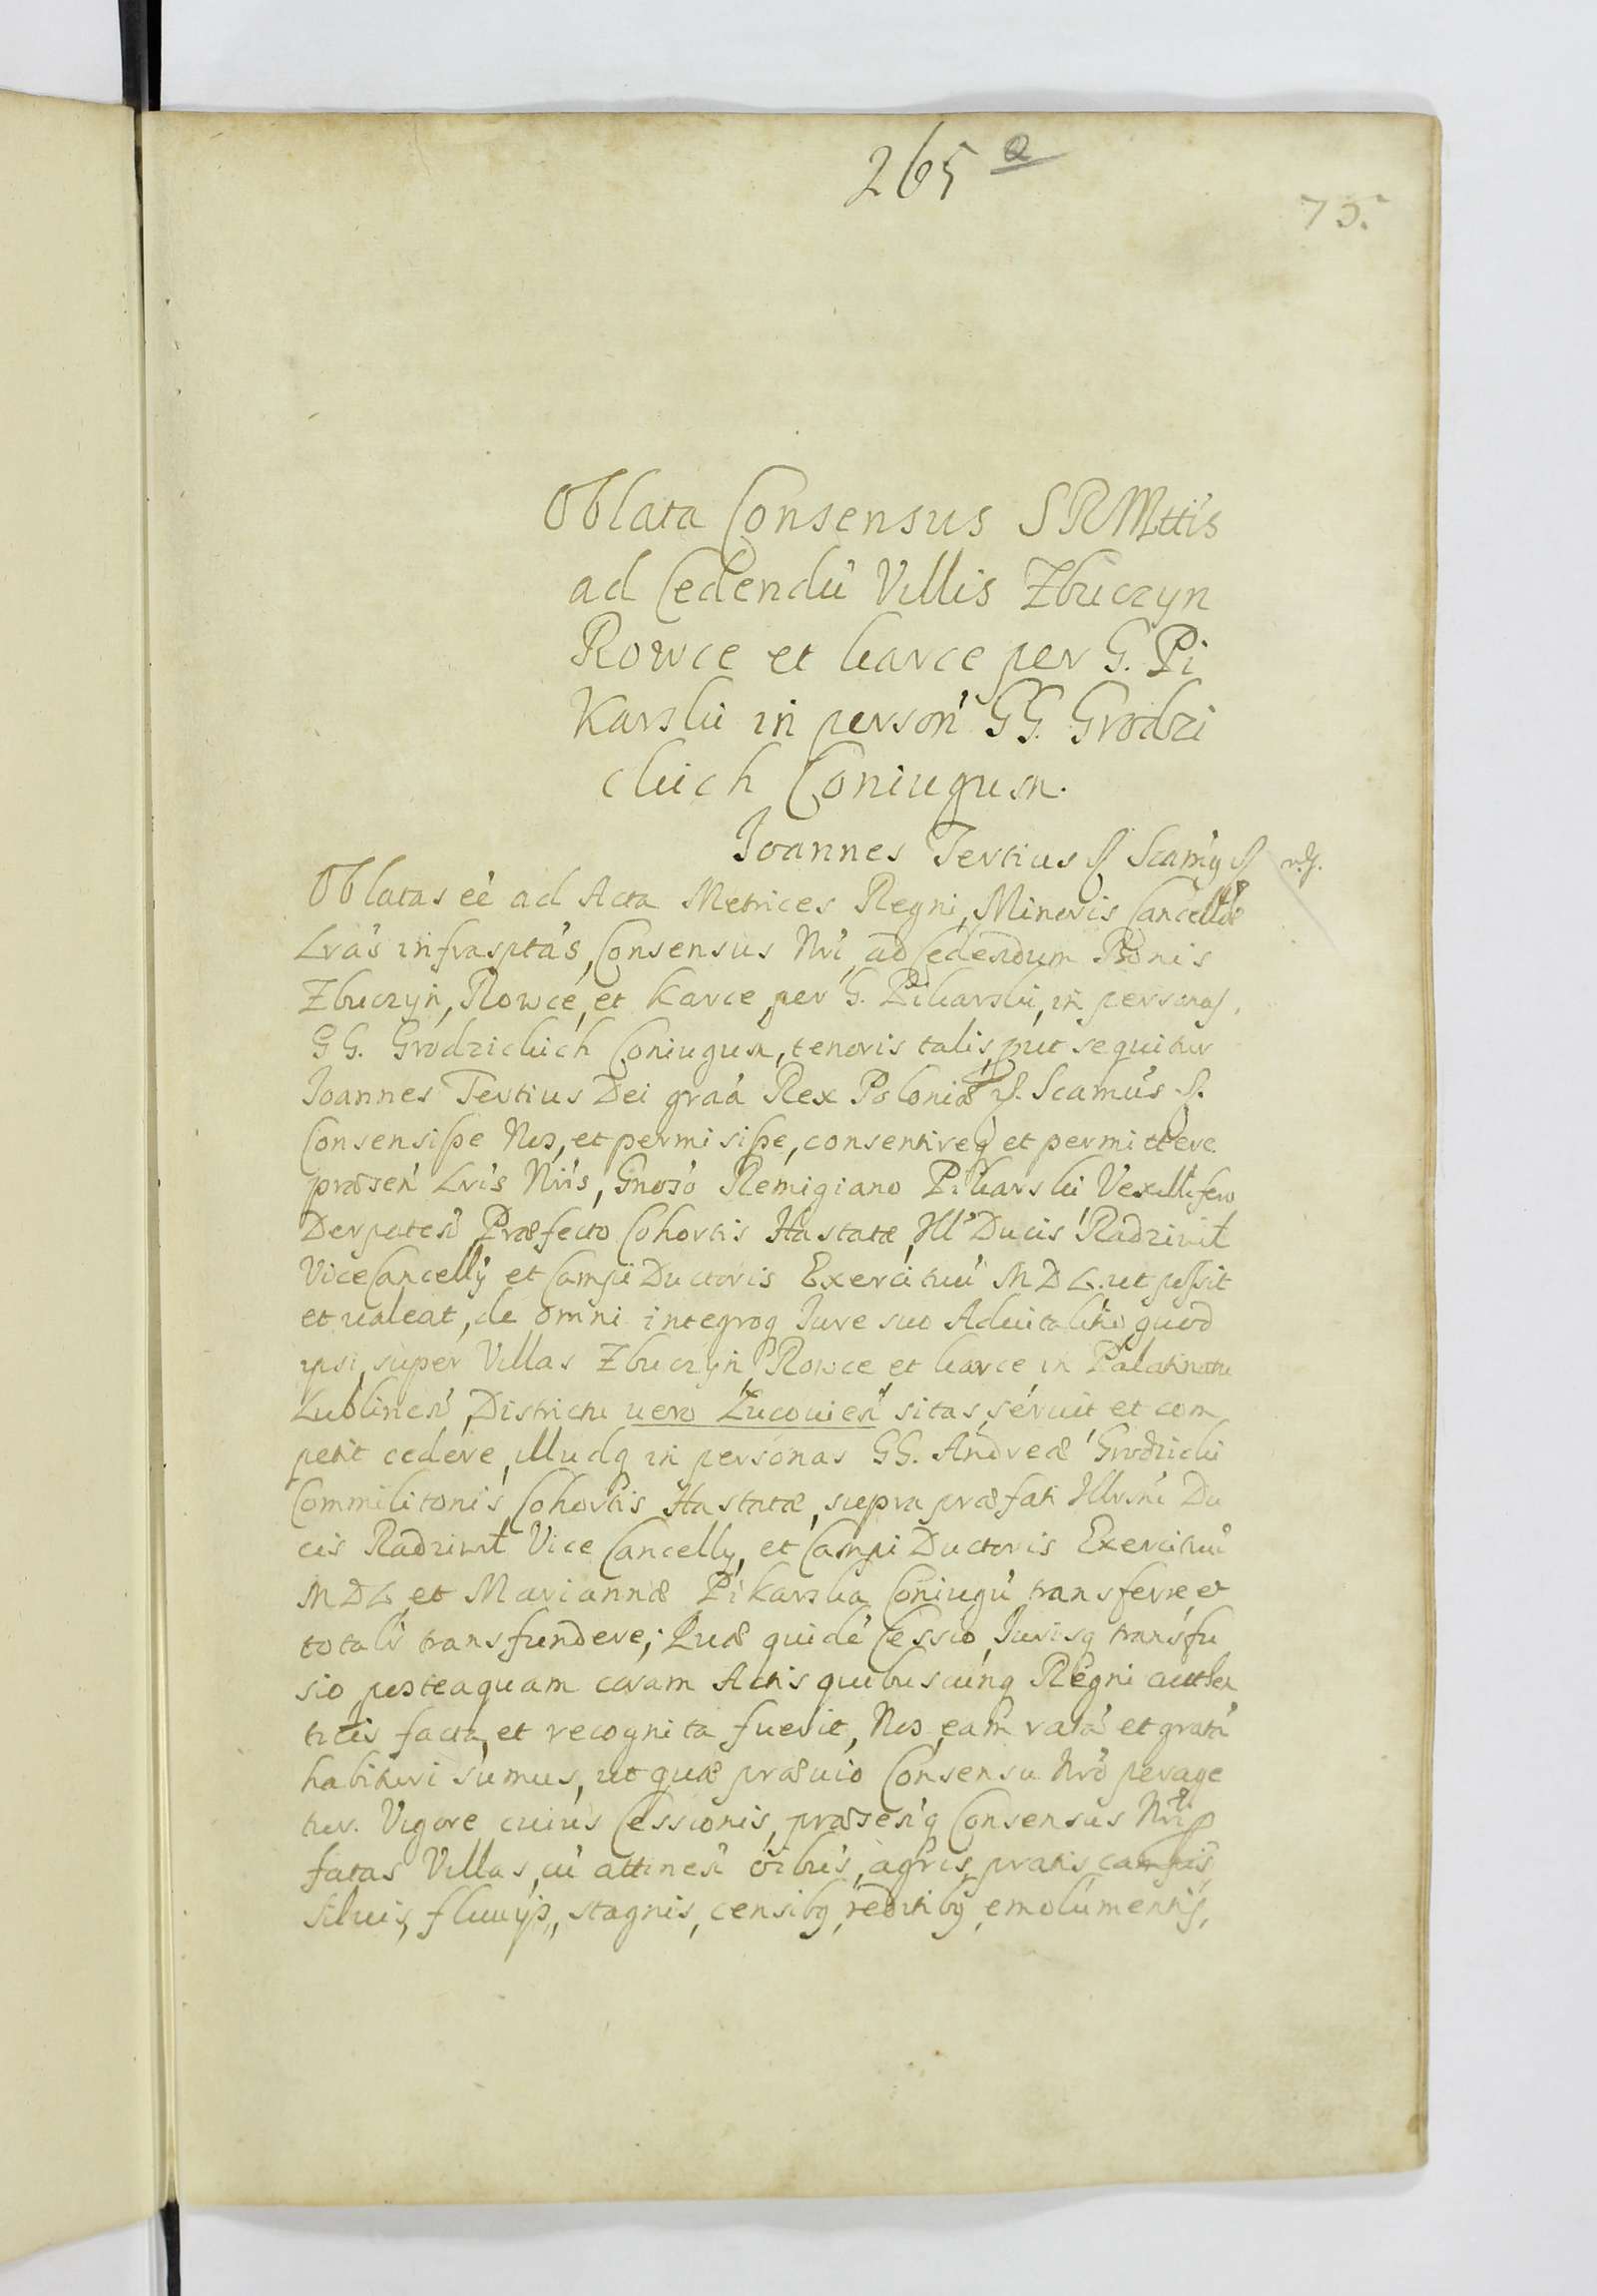 265 a
75.
Oblata Consensus SRMttis
ad Cedendū Villis Zbuczyn
Rowce et karce per G. Pi
Karski in person̄ GG. Grodzi
ckich Coniugum.
Joannes Tertius Scam̄g
Oblatas eē ad Acta Metrices Regni, Minoris Cancellæ
Lrās infrasptās, Consensus Nrī, ad Cedendum Bonis
Zbuczyn, Rowce, et Karce, per G. Pikarski, in personas
GG. Grodzickich Coniugum, tenoris talis, put sequitur
Joannes Tertius Dei graā Rex Poloniæ Scamus
Consensisse Nos, et permisisse, consentireq et permittere
præsen̄ Lrīs Nrīs, Gnoso Remigiano Pikarski Vexillifero
Derpaten̄, Præfecto Cohortis Hastatæ, Ill Ducis Radziwił
ViceCancellÿ et Campi Ductoris Exercituū MDL. ut possit
et ualeat, de omni integroq Iure suo Aduitalitio, quod
ipsi, super Villas Zbuczyn, Rowce, et karce, in Palatinatu
Lublinen̄, Districtu uero Lucouien̄ sitas, seruit et com
petit cedere, illudq in personas GG. Andreæ Grodzicki
Commilitonis Cohortis Hastatæ, supra præfati Illrmi Du
cis Radziwił Vice Cancelly, et Campi Ductoris Exercituū
MDL et Mariannæ Pikarska Coniugū transferre et
totalr̄ transfundere; Quæ quidē Cessio, Iurisq transfu
sio posteaquam coram Actis quibuscunq Regni authen
ticis facta, et recognita fuerit, Nos eam ratā et gratā
habituri sumus, ut quæ præuio Consensu Nrō perage
tur. Vigore cuius Cessionis, præsen̄q Consensus Nrī p
fatas Villas, cū attinen̄ oībus, agris, pratis, campis,
siluis, fluuÿs, stagnis, censibq, reditibq, emolumentis,